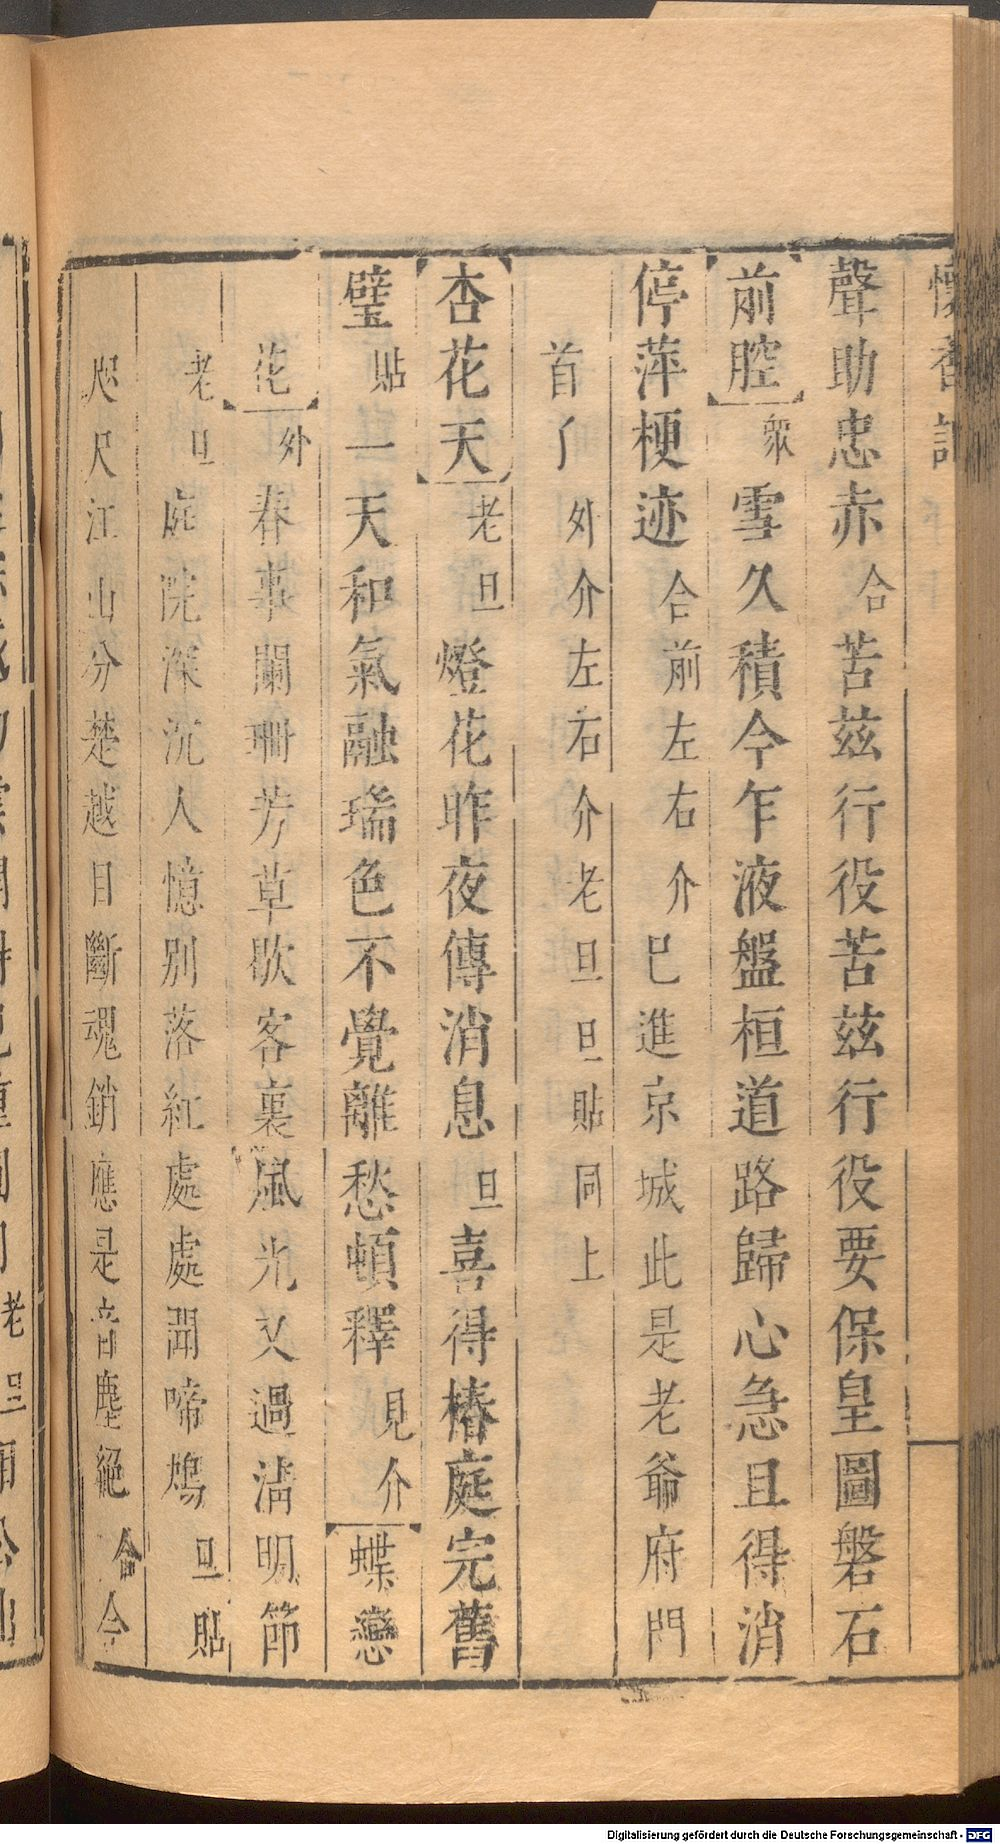 懷香記
聲助忠赤合苦茲行役苦茲行役要保皇圖磐石
前腔衆雪久積今乍液盤桓道路歸心急且得消
停萍梗迹合前左右介巳進京城此是老爺府門
首了外介左右介老旦旦貼同上
杏花天老旦燈花昨夜傳消息旦喜得椿庭完舊
璧貼一天和氣融瑞色不覺離愁頓釋見介蝶戀
花外春事闌珊芳草歇客裏風光又過淸明節
老旦庭院深沉人憶別落紅處處聞啼鴂旦貼
咫尺江山分楚越目斷魂銷應是音塵絕合今
Digitalisierung gefördert durch die Deutsche Forschungsgemeinschaft - DFG